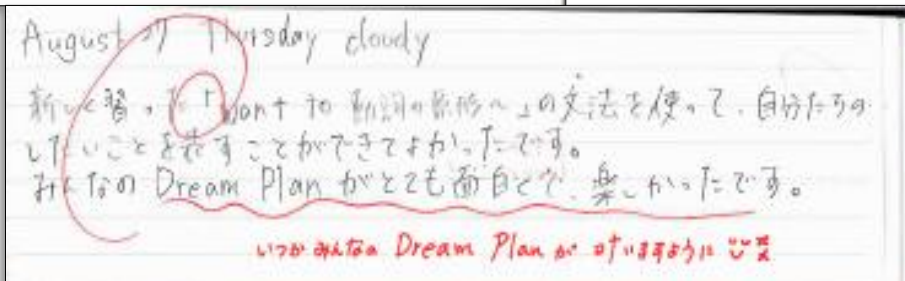 August 27 Thursday cloudy
新しく習った「want to 動詞の原形〜」の文法を使って、自分たちの
したいことを表すことができてよかったです。
みんなの Dream Plan がとても面白くて、楽しかったです。
いつかみんなの Dream Plan が叶いますように